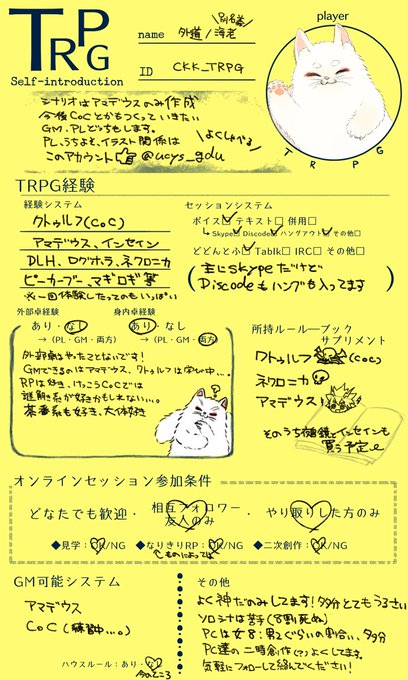 TRPG
Self-introduction
\別名義/
name 外道/海老
ID CKK_TRPG
player
TRPG
シナリオはアマデウスのみ作成
今後CoCとかもつくっていきたい
GM、PLどっちもします。
PL、うちよそ、イラスト関係は \よくしゃべる/
このアカウント @ucys_gdu
TRPG経験
経験システム
クトゥルフ(CoC)
アマデウス、インセイン
DLH、ログホラ、ネクロニカ
ピーカーブー、マギロギ 等
※一回体験したってのもいっぱい
セッションシステム
ボイス☑ テキスト□ 併用□
↳Skype☑ Discode☑ ハングアウト☑ その他□
どどんとふ☑ Tablk□ IRC□ その他□
(主にskypeだけど
Discodeもハングも入ってます)
外部卓経験
あり・なし
→(PL・GM・両方)
身内卓経験
あり・なし
→(PL・GM・両方)
外部卓はやったことないです!
GMできるのはアマデウス、クトゥルフは学び中…。
RPは好き、けっこうCoCでは
謎解き系が好きかもしれない…。
茶番系も好き、大体好き
?
所持ルールーブック
サプリメント
クトゥルフ (CoC)
ネクロニカ
アマデウス
そのうち御鏡とインセインも
買う予定
オンラインセッション参加条件
どなたでも歓迎・相互フォロワー
友人のみ・やり取りした方のみ
◆見学:OK/NG ◆なりきりRP:OK/NG ◆二次創作:OK/NG
ものによっては
GM可能システム
アマデウス
CoC(練習中…。)
ハウスルール:あり・なし
今のところ
その他
よく神だのみしてます!多分とてもうるさい
ソロシナは苦手(8割死ぬ)
PCは女8:男2ぐらいの割合、多分
PC達の二時創作(?)よくしてます。
気軽にフォローして絡んでください!